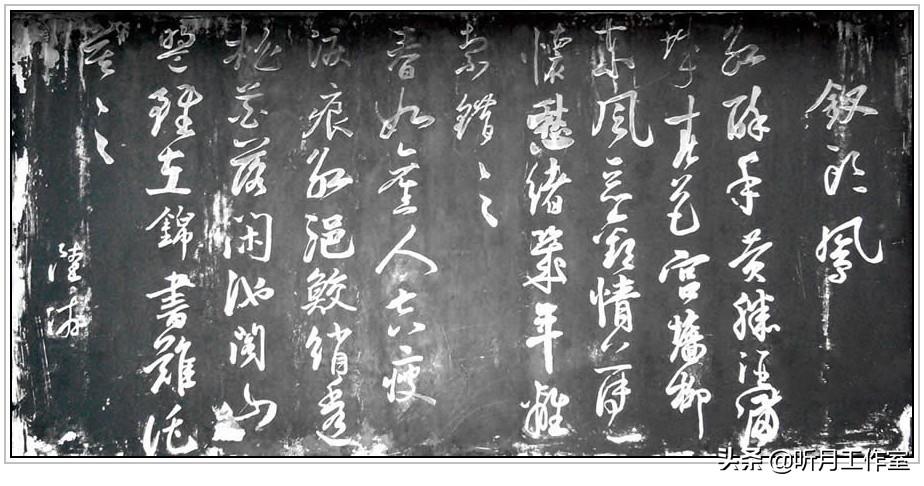 釵頭鳳
紅酥手黄縢酒滿
城春色宫墻柳
東風惡歡情薄一
懷愁緒幾年離
索錯〻〻
春如舊人空瘦
淚痕紅浥鮫綃透
桃花落閑池閣山
盟雖在錦書難託
莫〻〻
陸游
头条 @听月工作室